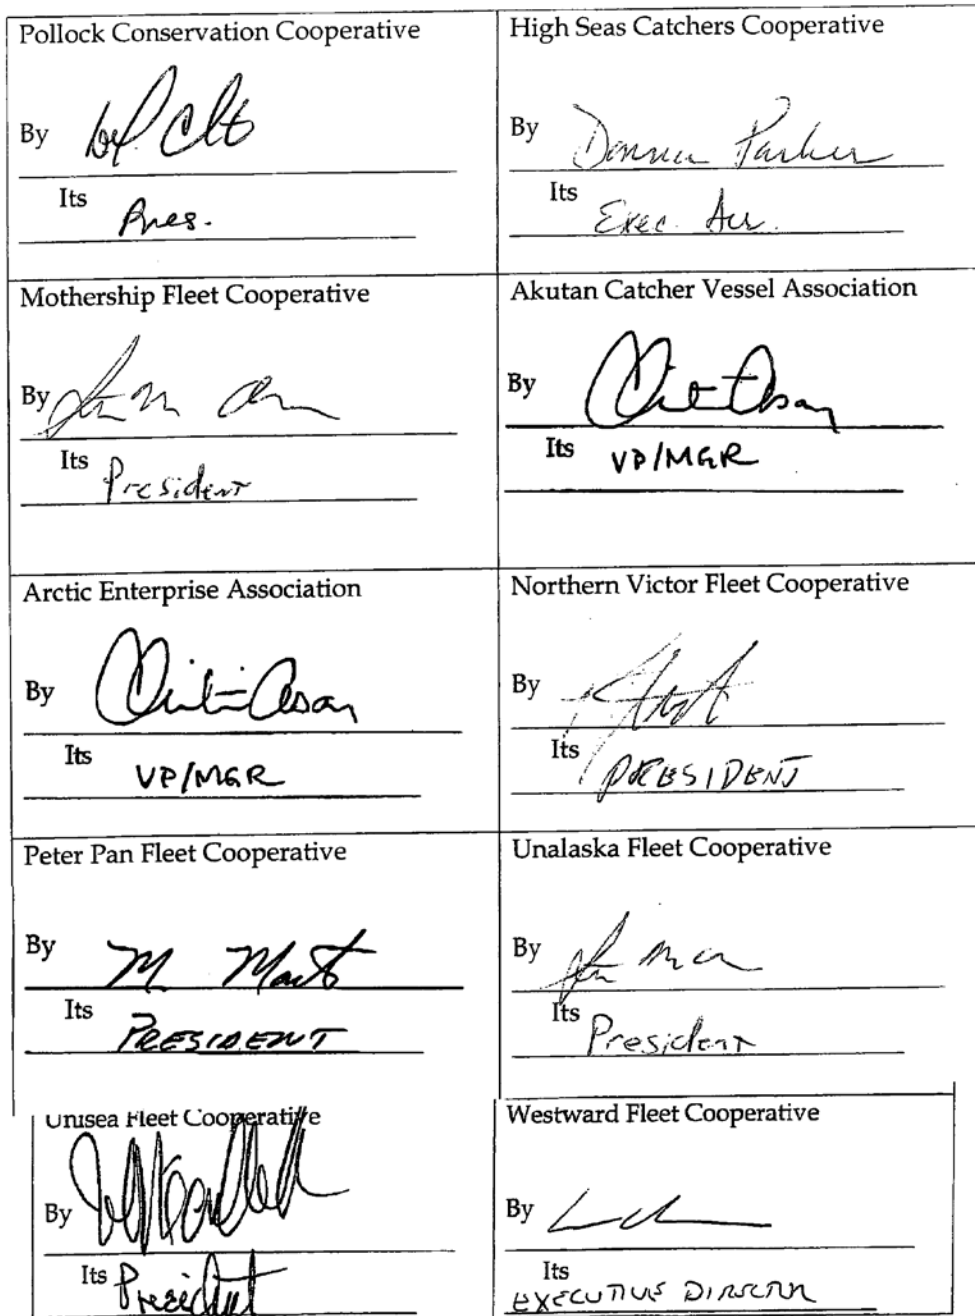 Pollock Conservation Cooperative
By
Its Pres.
High Seas Catchers Cooperative
By Donna Parker
Its Exec.
Mothership Fleet Cooperative
By
Its President
Akutan Catcher Vessel Association
By
Its VP/MGR
Arctic Enterprise Association
By
Its VP/MGR
Northern Victor Fleet Cooperative
By
Its PRESIDENT
Peter Pan Fleet Cooperative
By M
Its PRESIDENT
Unalaska Fleet Cooperative
By
Its President
Unisea Fleet Cooperative
By
Its President
Westward Fleet Cooperative
By
Its
EXECUTIVE DIRECTOR